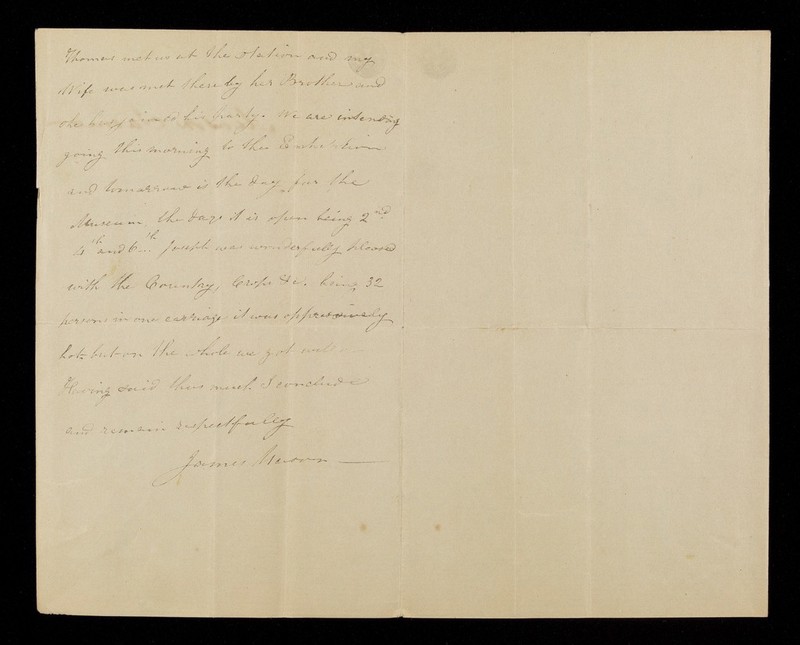 Thomas met us at the Station and my
Wife was met there by her Brother and
she his party. We are intending
going this morning to the Exhibition
and tomorrow is the day for the
Museum, the days it is open being 2nd
4th and 6th. Joseph was wonderfully pleased
with the Country, Crops &c. being 32
persons in one carriage it was oppressively
hot, but on the whole we got well
Having said thus much I conclude
and remain respectfully
James